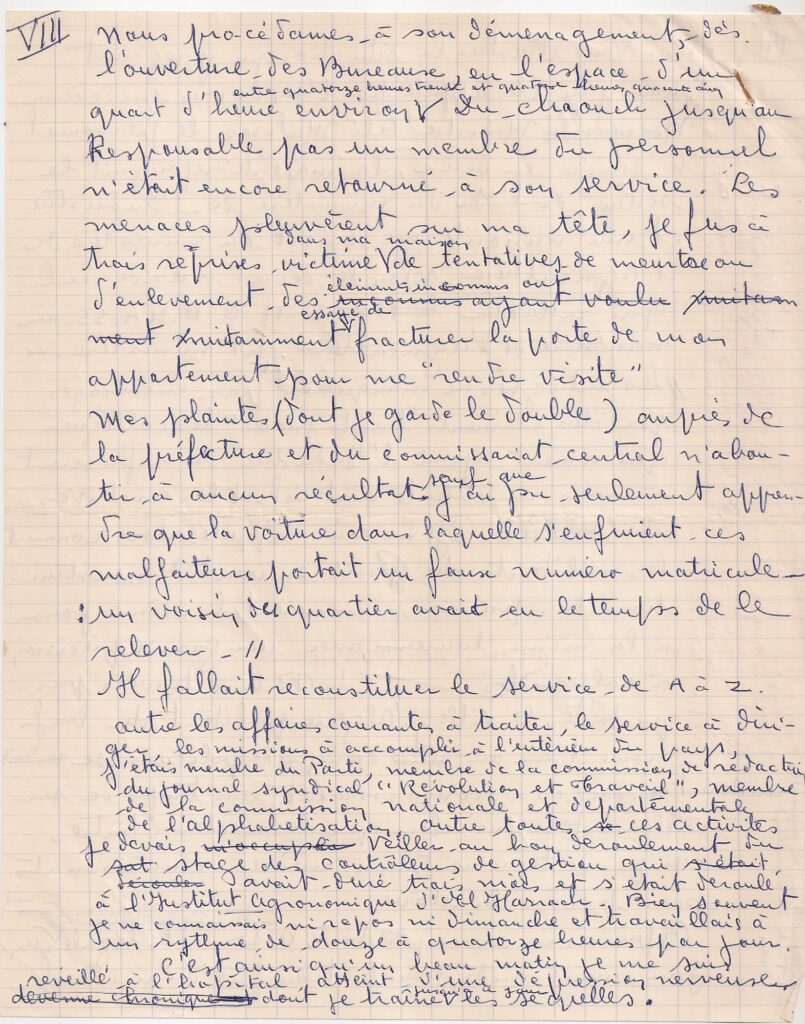 VIII
Nous procédames à son déménagement, dès
l'ouverture des Bureaux, en l'espace d'un
entre quatorze heures trente et quatorze heures quarante cinq
quart d'heure environ. Du chaouch jusqu'au
Responsable pas un membre du personnel
n'était encore retourné à son service. Les
menaces pleuvèrent sur ma tête, je fus à
dans ma maison
trois reprises victime de tentatives de meurtre ou
éléments inconnus ont
d'enlevement des inconnus ayant voulu
essayé de
ment nuitamment fracturer la porte de mon
appartement pour me "rendre visite"
Mes plaintes (dont je garde le double) auprès de
la préfecture et du commissariat central n'abou-
sauf que
tir à aucun résultat j'ai pu seulement appren-
dre que la voiture dans laquelle s'enfuient ces
malfaiteurs portait un faux numéro matricule -
: un voisin du quartier avait eu le temps de le
relever - //
Il fallait reconstituer le service de A à Z.
outre les affaires courantes à traiter, le service à diri-
ger, les missions à accomplir à l'intérieur du pays,
j'étais membre du Parti, membre de la commission de rédaction
du journal syndical "Révolution et Travail", membre
de la commission nationale et départementale
de l'alphabétisation, outre toutes se ces activités
je devais m'occuper veiller au bon deroulement du
stage des contrôleurs de gestion qui s'était
derouler avait duré trois mois et s'était deroulé
à l'Institut Agronomique d'El Harrach. Bien souvent
je ne connaissais ni repos ni dimanche et travaillais à
un rytme de douze à quatorze heures par jour.
C'est ainsi qu'un beau matin je me suis
reveillé à l'hôpital atteint d'une dépression nerveuse
jusqu'à ce jour
devenue chronique et dont je traîne les séquelles.